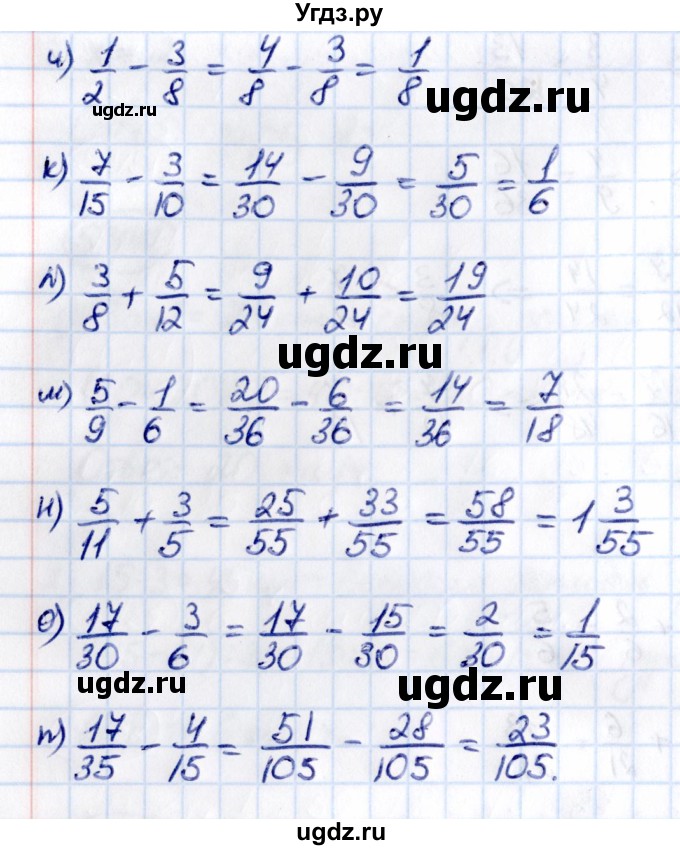 Угдз.ру
и) 1/2 - 3/8 = 4/8 - 3/8 = 1/8
ugdz.ru
ugdz.ru
к) 7/15 - 3/10 = 14/30 - 9/30 = 5/30 = 1/6
л) 3/8 + 5/12 = 9/24 + 10/24 = 19/24
ugdz.ru
м) 5/9 - 1/6 = 20/36 - 6/36 = 14/36 = 7/18
н) 5/11 + 3/5 = 25/55 + 33/55 = 58/55 = 1 3/55
о) 17/30 - 3/6 = 17/30 - 15/30 = 2/30 = 1/15
ugdz.ru
ugdz.ru
п) 17/35 - 4/15 = 51/105 - 28/105 = 23/105.
ugdz.ru